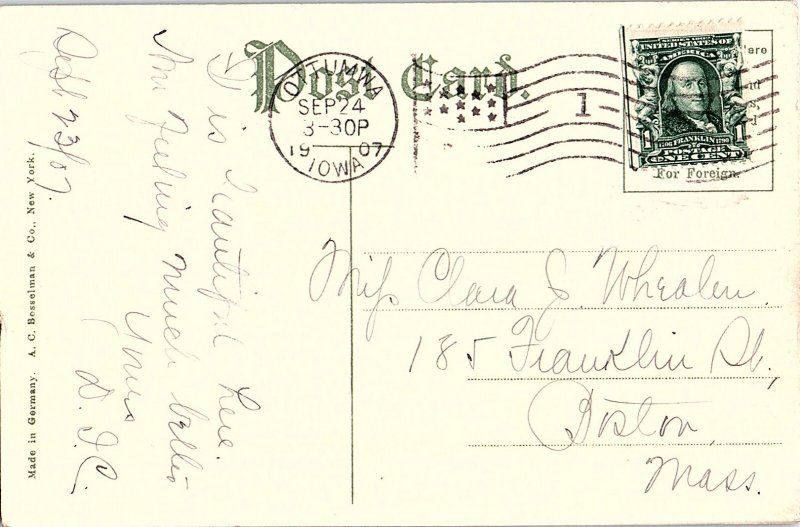 Post Card.
OTTUMWA
SEP 24
3-30P
1907
IOWA
1
SERIES 1902
UNITED STATES OF
AMERICA
1706 FRANKLIN 1790
POSTAGE
1 ONE CENT 1
For Foreign.
Sept 23/07.
It is beautiful here.
Am feeling much better
Yours
D. J. C.
Miss Clara J. Whealen.
185 Franklin St.,
Boston,
Mass.
Made in Germany. A. C. Bosselman & Co., New York.